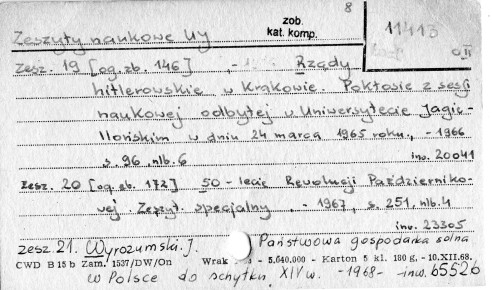 8
zob.
kat. komp.
11413
Zeszyty naukowe UJ
Zesz. 19 [og. zb. 146], - Rządy
hitlerowskie w Krakowie. Pokłosie z sesji
naukowej odbytej w Uniwersytecie Jagie-
llońskim w dniu 24 marca 1965 roku, - 1966
s. 96, nlb. 6 inw. 20041
Zesz. 20 [og. zb. 172] 50-lecie Rewolucji Październiko-
wej. Zeszyt specjalny, - 1967, s. 251, nlb. 4
inw. 23305
zesz. 21. Wyrozumski J. Państwowa gospodarka solna
CWD B 15 b Zam. 1537/DW/On Wrak - 5.640.000 - Karton 5 kl. 180 g. - 10.XII.68.
w Polsce do schyłku XIV w. -1968- inw. 65526